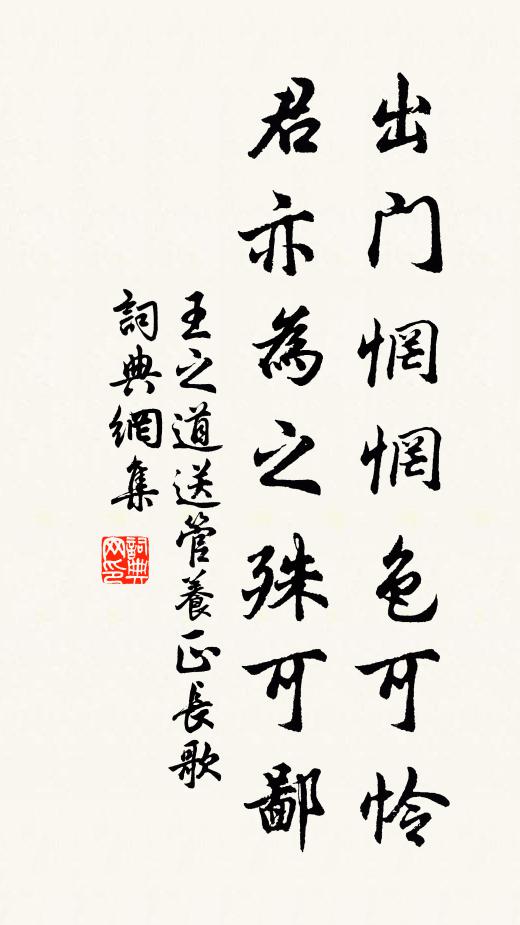 出門惘惘色可怜
君亦為之殊可鄙
王之道送管養正長歌
詞典網集
詞典网印